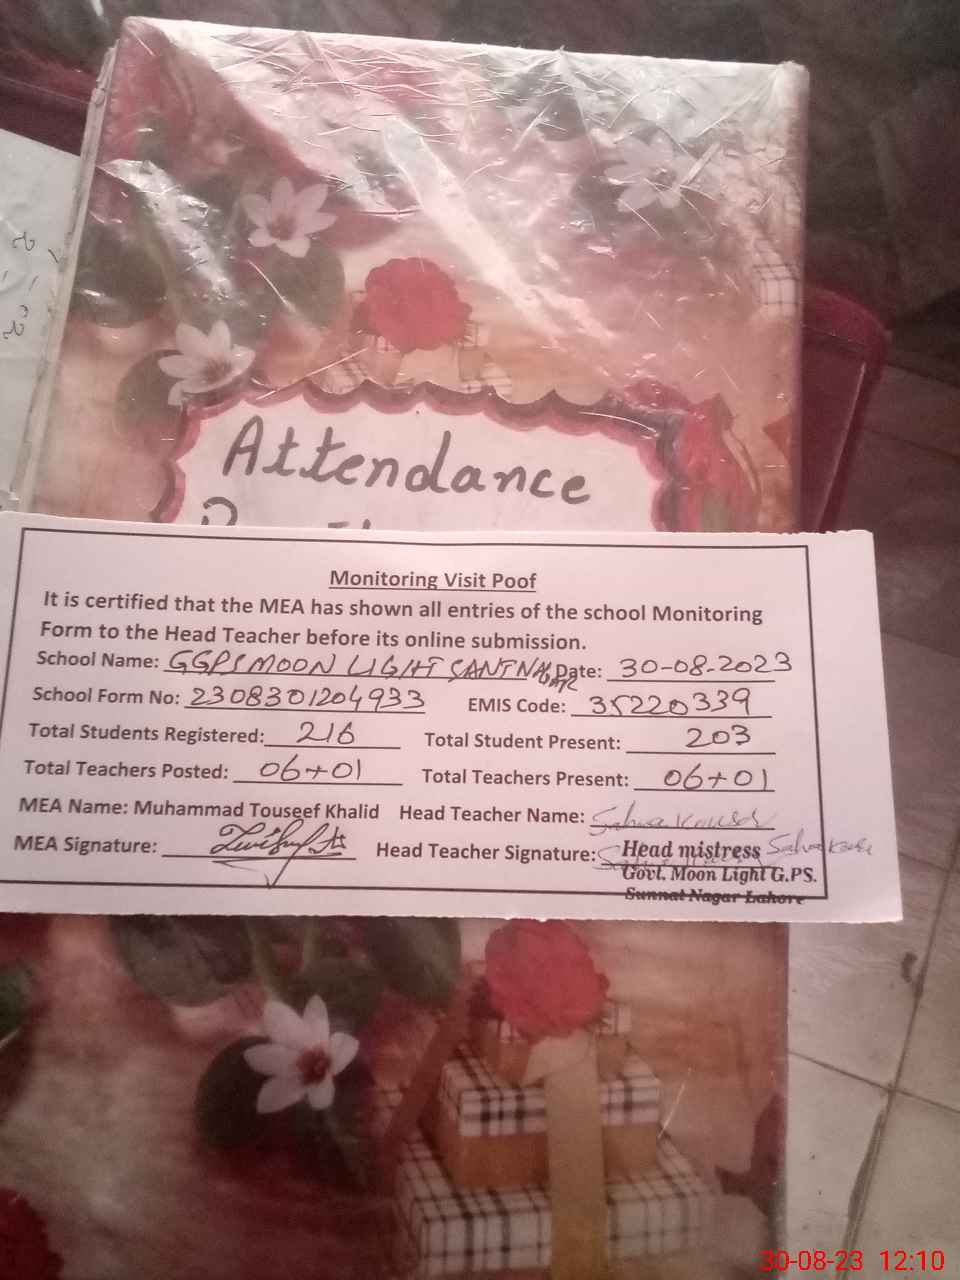 Attendance
Monitoring Visit Poof
It is certified that the MEA has shown all entries of the school Monitoring
Form to the Head Teacher before its online submission.
School Name: GGPS MOON LIGHT SANT NAGAR Date: 30-08-2023
School Form No: 2308301204933 EMIS Code: 35220339
Total Students Registered: 216 Total Student Present: 203
Total Teachers Posted: 06+01 Total Teachers Present: 06+01
MEA Name: Muhammad Touseef Khalid Head Teacher Name:
MEA Signature: Head Teacher Signature:
Head mistress
Govt. Moon Light G.PS.
Sunnat Nagar Lahore
30-08-23 12:10